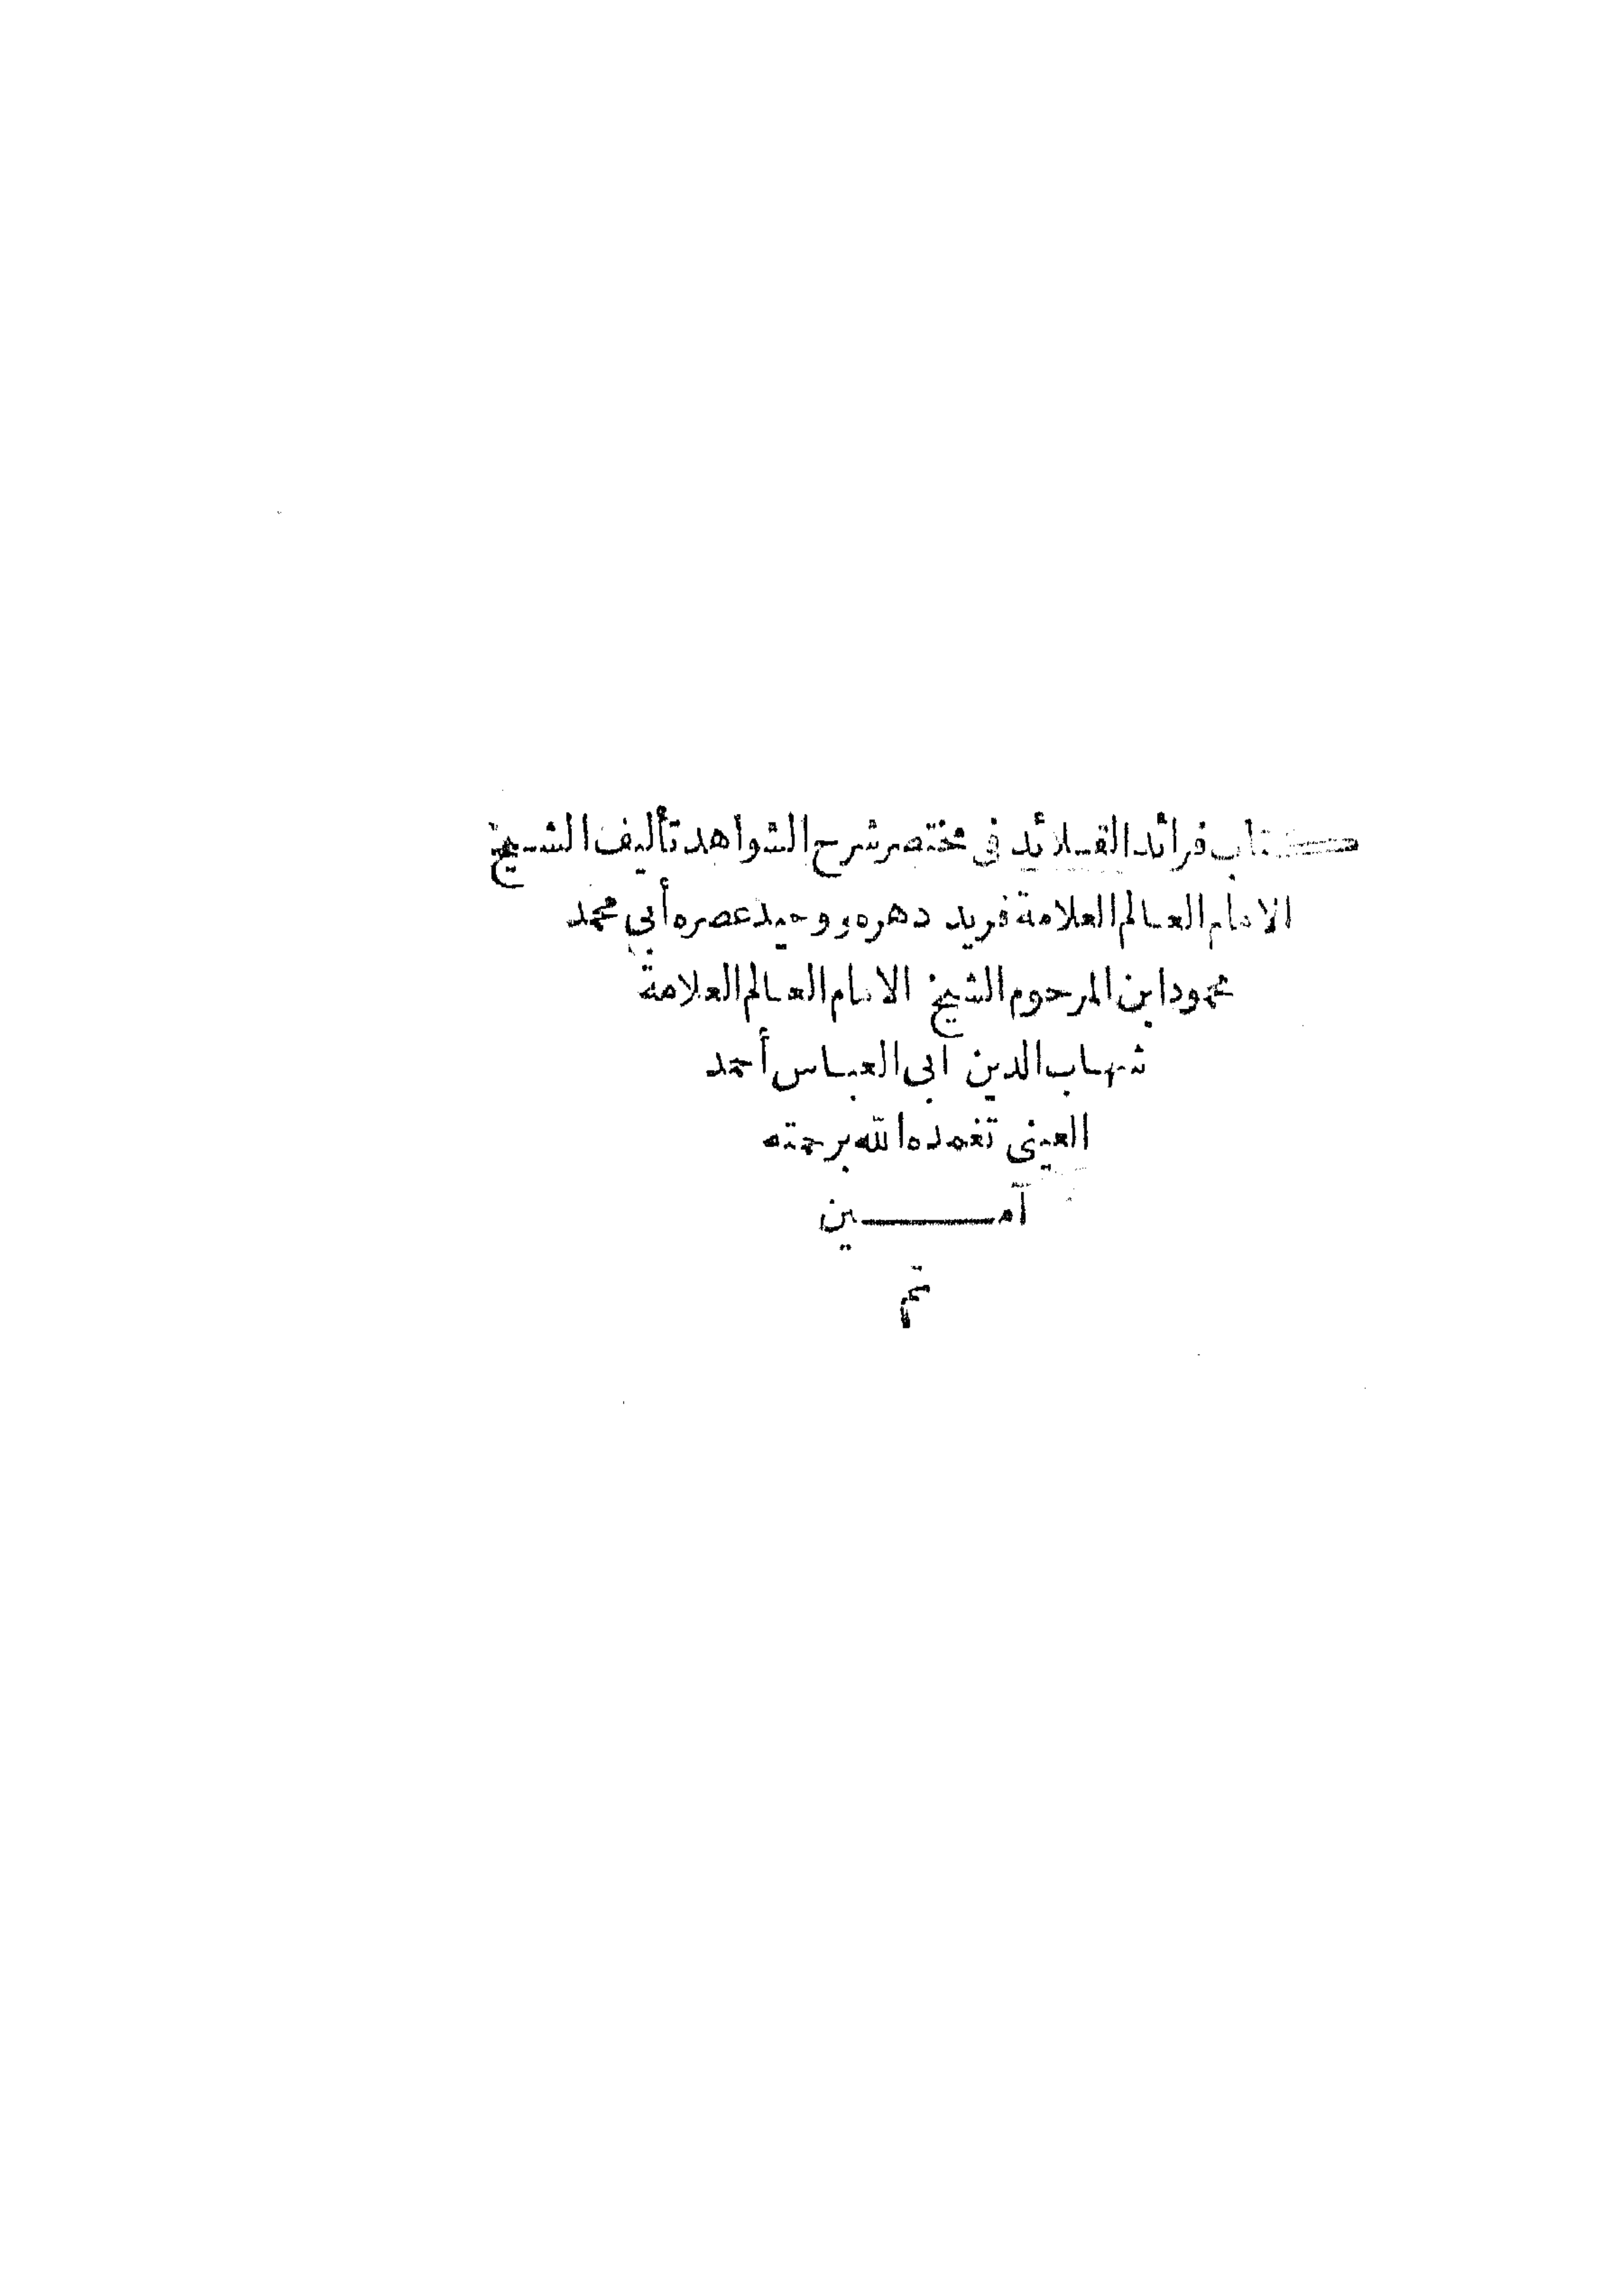 كتاب فرائد القلائد فى مختصر شرح الشواهد تأليف الشيخ
الامام العالم العلامة فريد دهره ووحيد عصره أبي محمد
محمود ابن المرحوم الشيخ الامام العالم العلامة
شهاب الدين ابى العباس أحمد
العينى تغمده الله برحمته
آمـــــين
تم